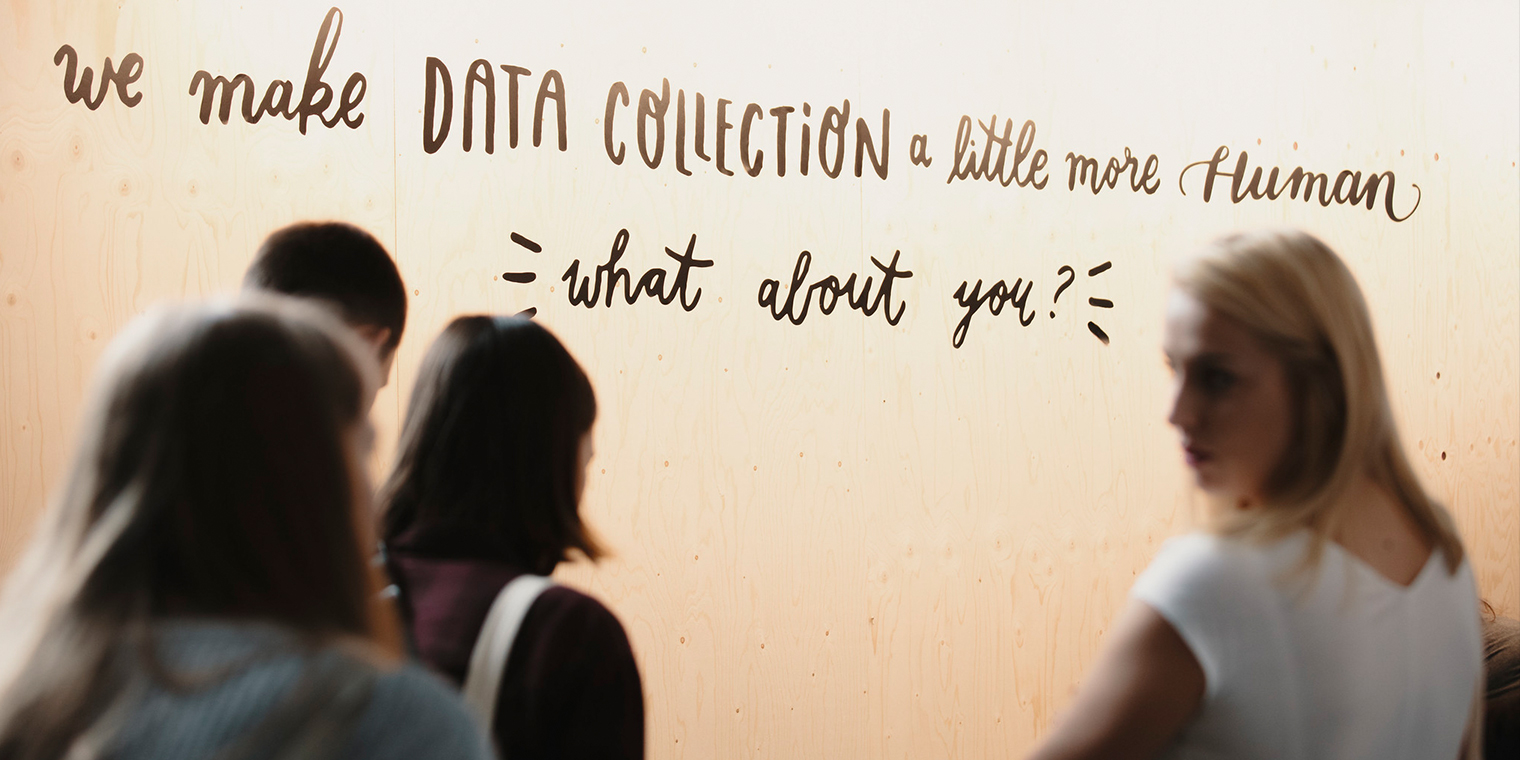 we make DATA COLLECTION a little more Human
what about you?